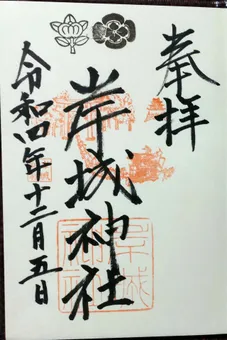 奉拝
岸城神社
令和四年十二月五日